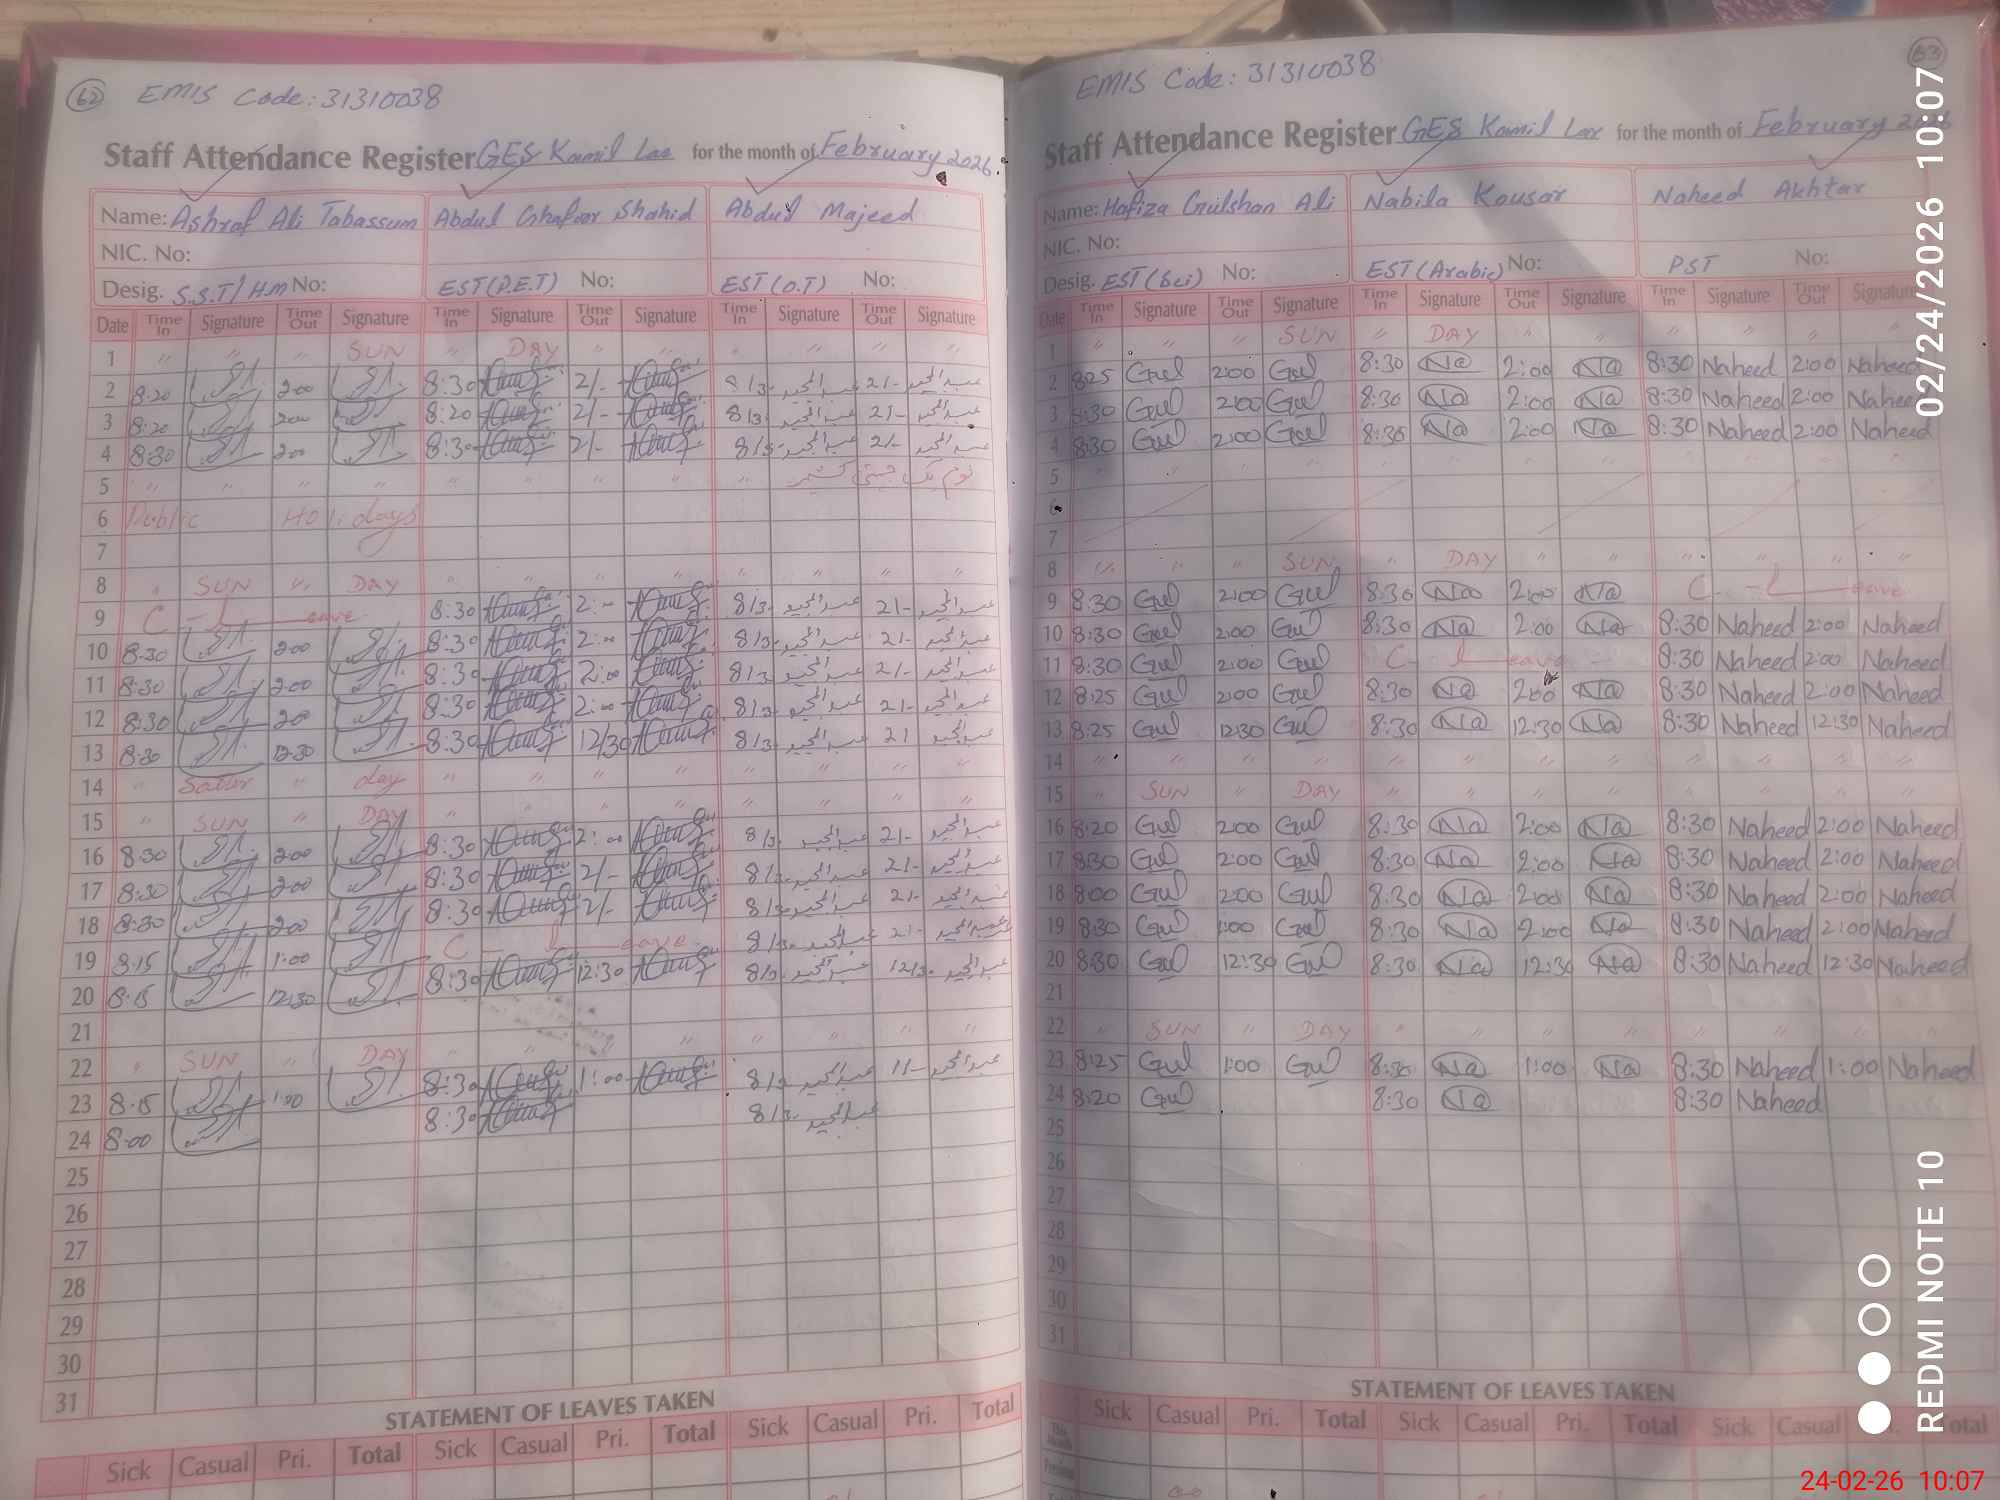 62 EMIS Code: 31310038
Staff Attendance Register GES Kamil Lae for the month of February 2026.
Name: Ashraf Ali Tabassum Abdul Ghafoor Shahid Abdul Majeed
NIC. No:
Desig. S.S.T/HM No: EST(P.E.T) No: EST(O.T) No:
Date Time In Signature Time Out Signature Time In Signature Time Out Signature Time In Signature Time Out Signature
1 " " " SUN " DAY " " " " " "
2 8:20 2:00 8:30 2/- 8/3- عبدالمجید 2/- عبدالمجید
3 8:20 2:00 8:20 2/- 8/3- عبدالمجید 2/- عبدالمجید
4 8:30 2:00 8:30 2/- 8/3- عبدالمجید 2/- عبدالمجید
5 " " " " " " " " "
6 Public Holidays
7
8 " SUN " DAY " " " " " " " "
9 C - l eave 8:30 2:00 8/3- عبدالمجید 2/- عبدالمجید
10 8:30 2:00 8:30 2:00 8/3- عبدالمجید 2/- عبدالمجید
11 8:30 2:00 8:30 2:00 8/3- عبدالمجید 2/- عبدالمجید
12 8:30 2:00 8:30 2:00 8/3- عبدالمجید 2/- عبدالمجید
13 8:30 12:30 8:30 12/30 8/3- عبدالمجید 2/ عبدالمجید
14 " Satur " day " " " " " " " "
15 " SUN " DAY " " " " " " " "
16 8:30 2:00 8:30 2:00 8/3- عبدالمجید 2/- عبدالمجید
17 8:30 2:00 8:30 2/- 8/3- عبدالمجید 2/- عبدالمجید
18 8:30 2:00 8:30 2/- 8/3- عبدالمجید 2/- عبدالمجید
19 8:15 1:00 C - l eave 8/3- عبدالمجید 2/- عبدالمجید
20 8:15 12:30 8:30 12:30 8/3- عبدالمجید 12/3- عبدالمجید
21
22 " SUN " DAY " " " " "
23 8:15 1:00 8:30 1:00 8/3- عبدالمجید 1/- عبدالمجید
24 8:00 8:30 8/3- عبدالمجید
25
26
27
28
29
30
31
STATEMENT OF LEAVES TAKEN
Sick Casual Pri. Total Sick Casual Pri. Total Sick Casual Pri. Total
EMIS Code: 31310038 63
Staff Attendance Register GES Kamil Lae for the month of February 2026
Name: Hafiza Gulshan Ali Nabila Kousar Naheed Akhtar
NIC. No:
Desig. EST(Sci) No: EST(Arabic) No: PST No:
Date Time In Signature Time Out Signature Time In Signature Time Out Signature Time In Signature Time Out Signature
1 " " " SUN " DAY " " " " " "
2 8:25 Gul 2:00 Gul 8:30 Na 2:00 Na 8:30 Naheed 2:00 Naheed
3 8:30 Gul 2:00 Gul 8:30 Na 2:00 Na 8:30 Naheed 2:00 Naheed
4 8:30 Gul 2:00 Gul 8:30 Na 2:00 Na 8:30 Naheed 2:00 Naheed
5 " " " " " " " " " " " "
6
7
8 " " " SUN " DAY " " " " " "
9 8:30 Gul 2:00 Gul 8:30 Na 2:00 Na C - l eave
10 8:30 Gul 2:00 Gul 8:30 Na 2:00 Na 8:30 Naheed 2:00 Naheed
11 8:30 Gul 2:00 Gul C - l eave 8:30 Naheed 2:00 Naheed
12 8:25 Gul 2:00 Gul 8:30 Na 2:00 Na 8:30 Naheed 2:00 Naheed
13 8:25 Gul 12:30 Gul 8:30 Na 12:30 Na 8:30 Naheed 12:30 Naheed
14 " " " " " " " " " " " "
15 " SUN " DAY " " " " " " " "
16 8:20 Gul 2:00 Gul 8:30 Na 2:00 Na 8:30 Naheed 2:00 Naheed
17 8:30 Gul 2:00 Gul 8:30 Na 2:00 Na 8:30 Naheed 2:00 Naheed
18 8:00 Gul 2:00 Gul 8:30 Na 2:00 Na 8:30 Naheed 2:00 Naheed
19 8:30 Gul 1:00 Gul 8:30 Na 2:00 Na 8:30 Naheed 2:00 Naheed
20 8:30 Gul 12:30 Gul 8:30 Na 12:30 Na 8:30 Naheed 12:30 Naheed
21
22 " SUN " DAY " " " " " " " "
23 8:25 Gul 1:00 Gul 8:30 Na 1:00 Na 8:30 Naheed 1:00 Naheed
24 8:20 Gul 8:30 Na 8:30 Naheed
25
26
27
28
29
30
31
STATEMENT OF LEAVES TAKEN
Sick Casual Pri. Total Sick Casual Pri. Total Sick Casual Total
This Month
Previous
02/24/2026 10:07
REDMI NOTE 10
24-02-26 10:07